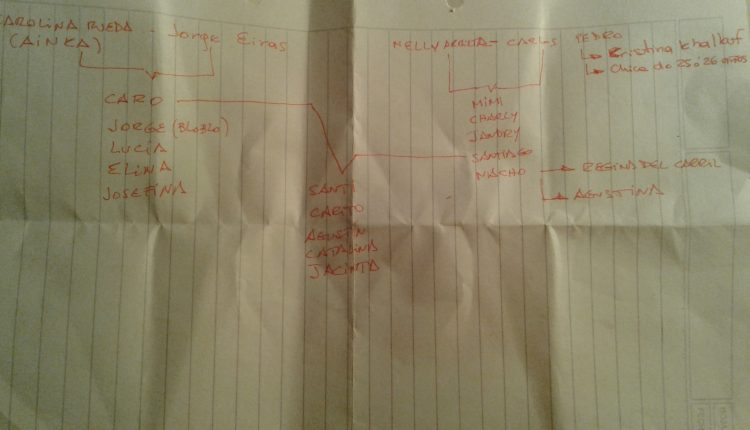 CAROLINA RUEDA - Jorge Eiras
(AINKA)
CARO
JORGE (BLOBLO)
LUCIA
ELINA
JOSEFINA
NELLY - CARLOS
MIMI
CHARLY
JANDRY
SANTIAGO
NACHO
REGINA DEL CARRIL
AGUSTINA
PEDRO
Cristina Khallouf
Chica de 25 ó 26 años
SANTI
CARITO
AGUSTÍN
CATALINA
JACINTA